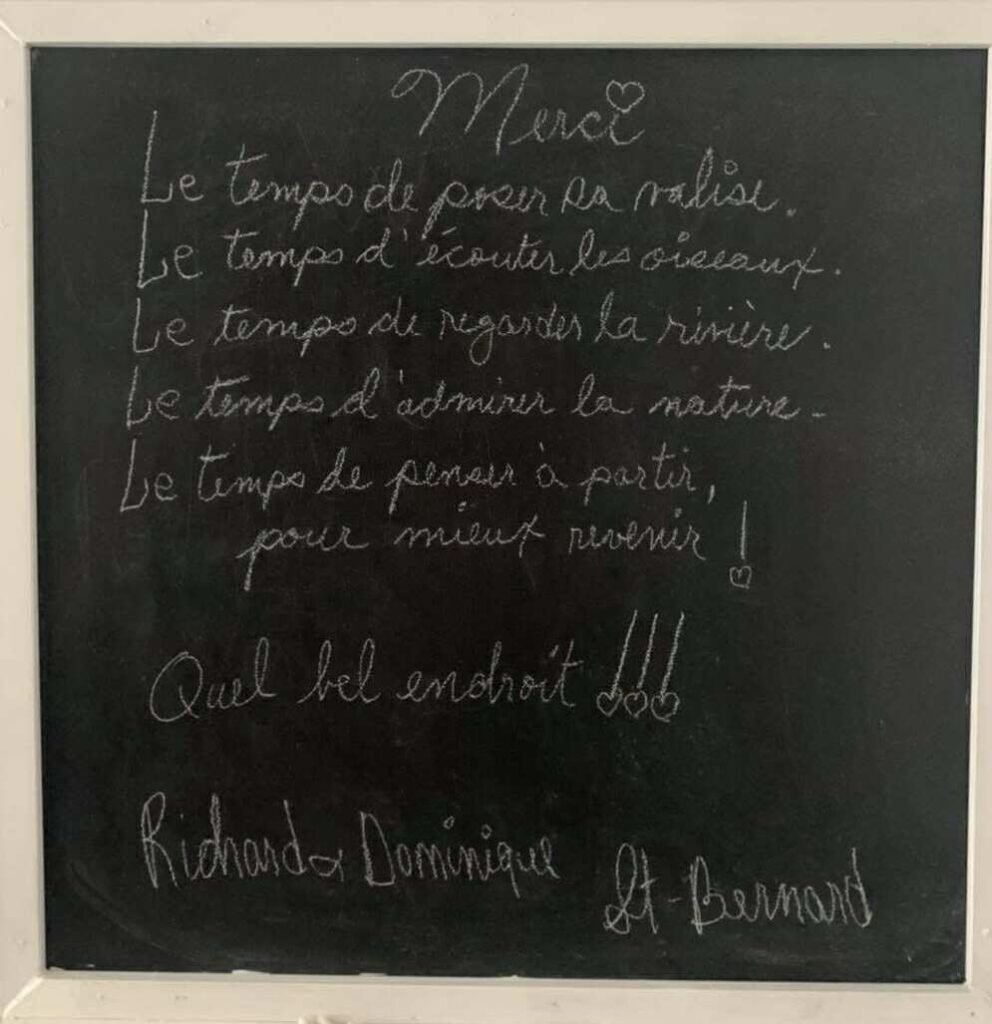 Merci
Le temps de poser sa valise.
Le temps d'écouter les oiseaux.
Le temps de regarder la rivière.
Le temps d'admirer la nature.
Le temps de penser à partir,
pour mieux revenir !
Quel bel endroit !!!
Richard & Dominique
St-Bernard